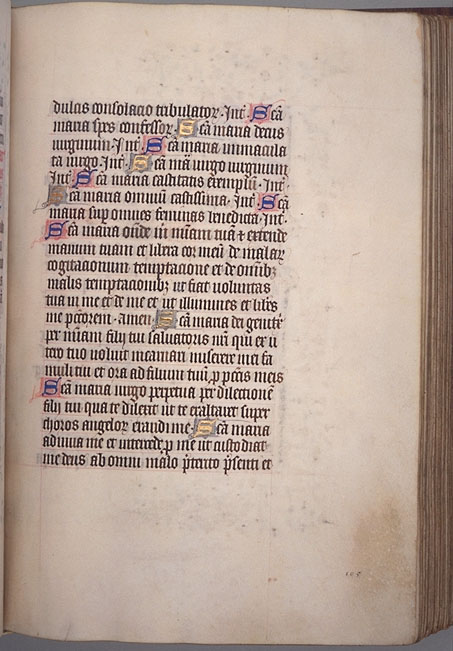 dulcis consolacio tribulatoꝝ. Int̄. Sc̄a
maria spes confessoꝝ. Sc̄a maria decus
uirginum. Int̄. Sc̄a maria immacula
ta uirgo. Int̄. Sc̄a mā uirgo uirginum
Int̄. Sc̄a maria castitatis exemplū. Int̄.
Sc̄a maria omniū castissima. Int̄. Sc̄a
maria sup omnes feminas benedicta. Int̄.
Sc̄a maria in m̄iam tuā & extende
manum tuam et libera cor meū de malaꝝ
cogitacionum temptacione et de omībꝫ
malis temptacionibꝫ ut fiat voluntas
tua in me et de me et ut illumines et lib̄es
me p̄c̄orem. amen. Sc̄a maria dei genit̄x
per m̄iam filij tui saluatoris n̄ri qui ex u
tero tuo uoluit incarnari miserere mei fa
muli tui et ora ad filium tuū. p̱ p̄c̄is meis
Sc̄a maria uirgo perpetua per dilectionē
filij tui qua te dilexit ut te exaltaret super
choros angeloꝝ exaudi me. Sc̄a maria
adiuua me et intercede p̱ me ut custodiat
me deus ab omni malo p̄terito p̄senti et